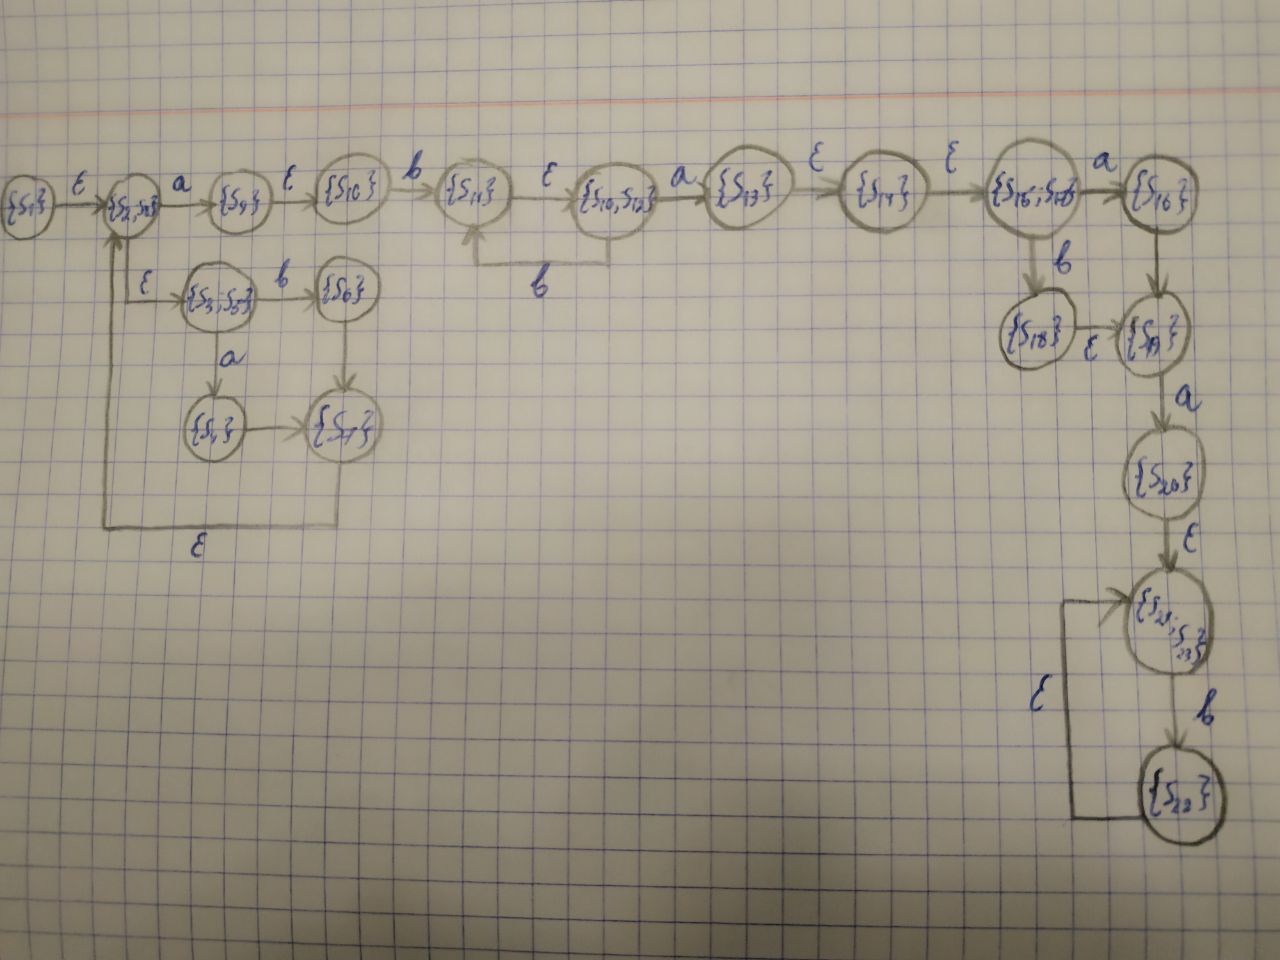 {S1} ε {S2,S8} a {S9} ε {S10} b {S11} ε {S10,S12} a {S13} ε {S14} ε {S15;S17} a {S16}
ε {S3,S5} b {S6} b b {S18} ε {S19}
a {S4} {S7} a {S20}
ε ε {S21;S23}
ε b {S22}